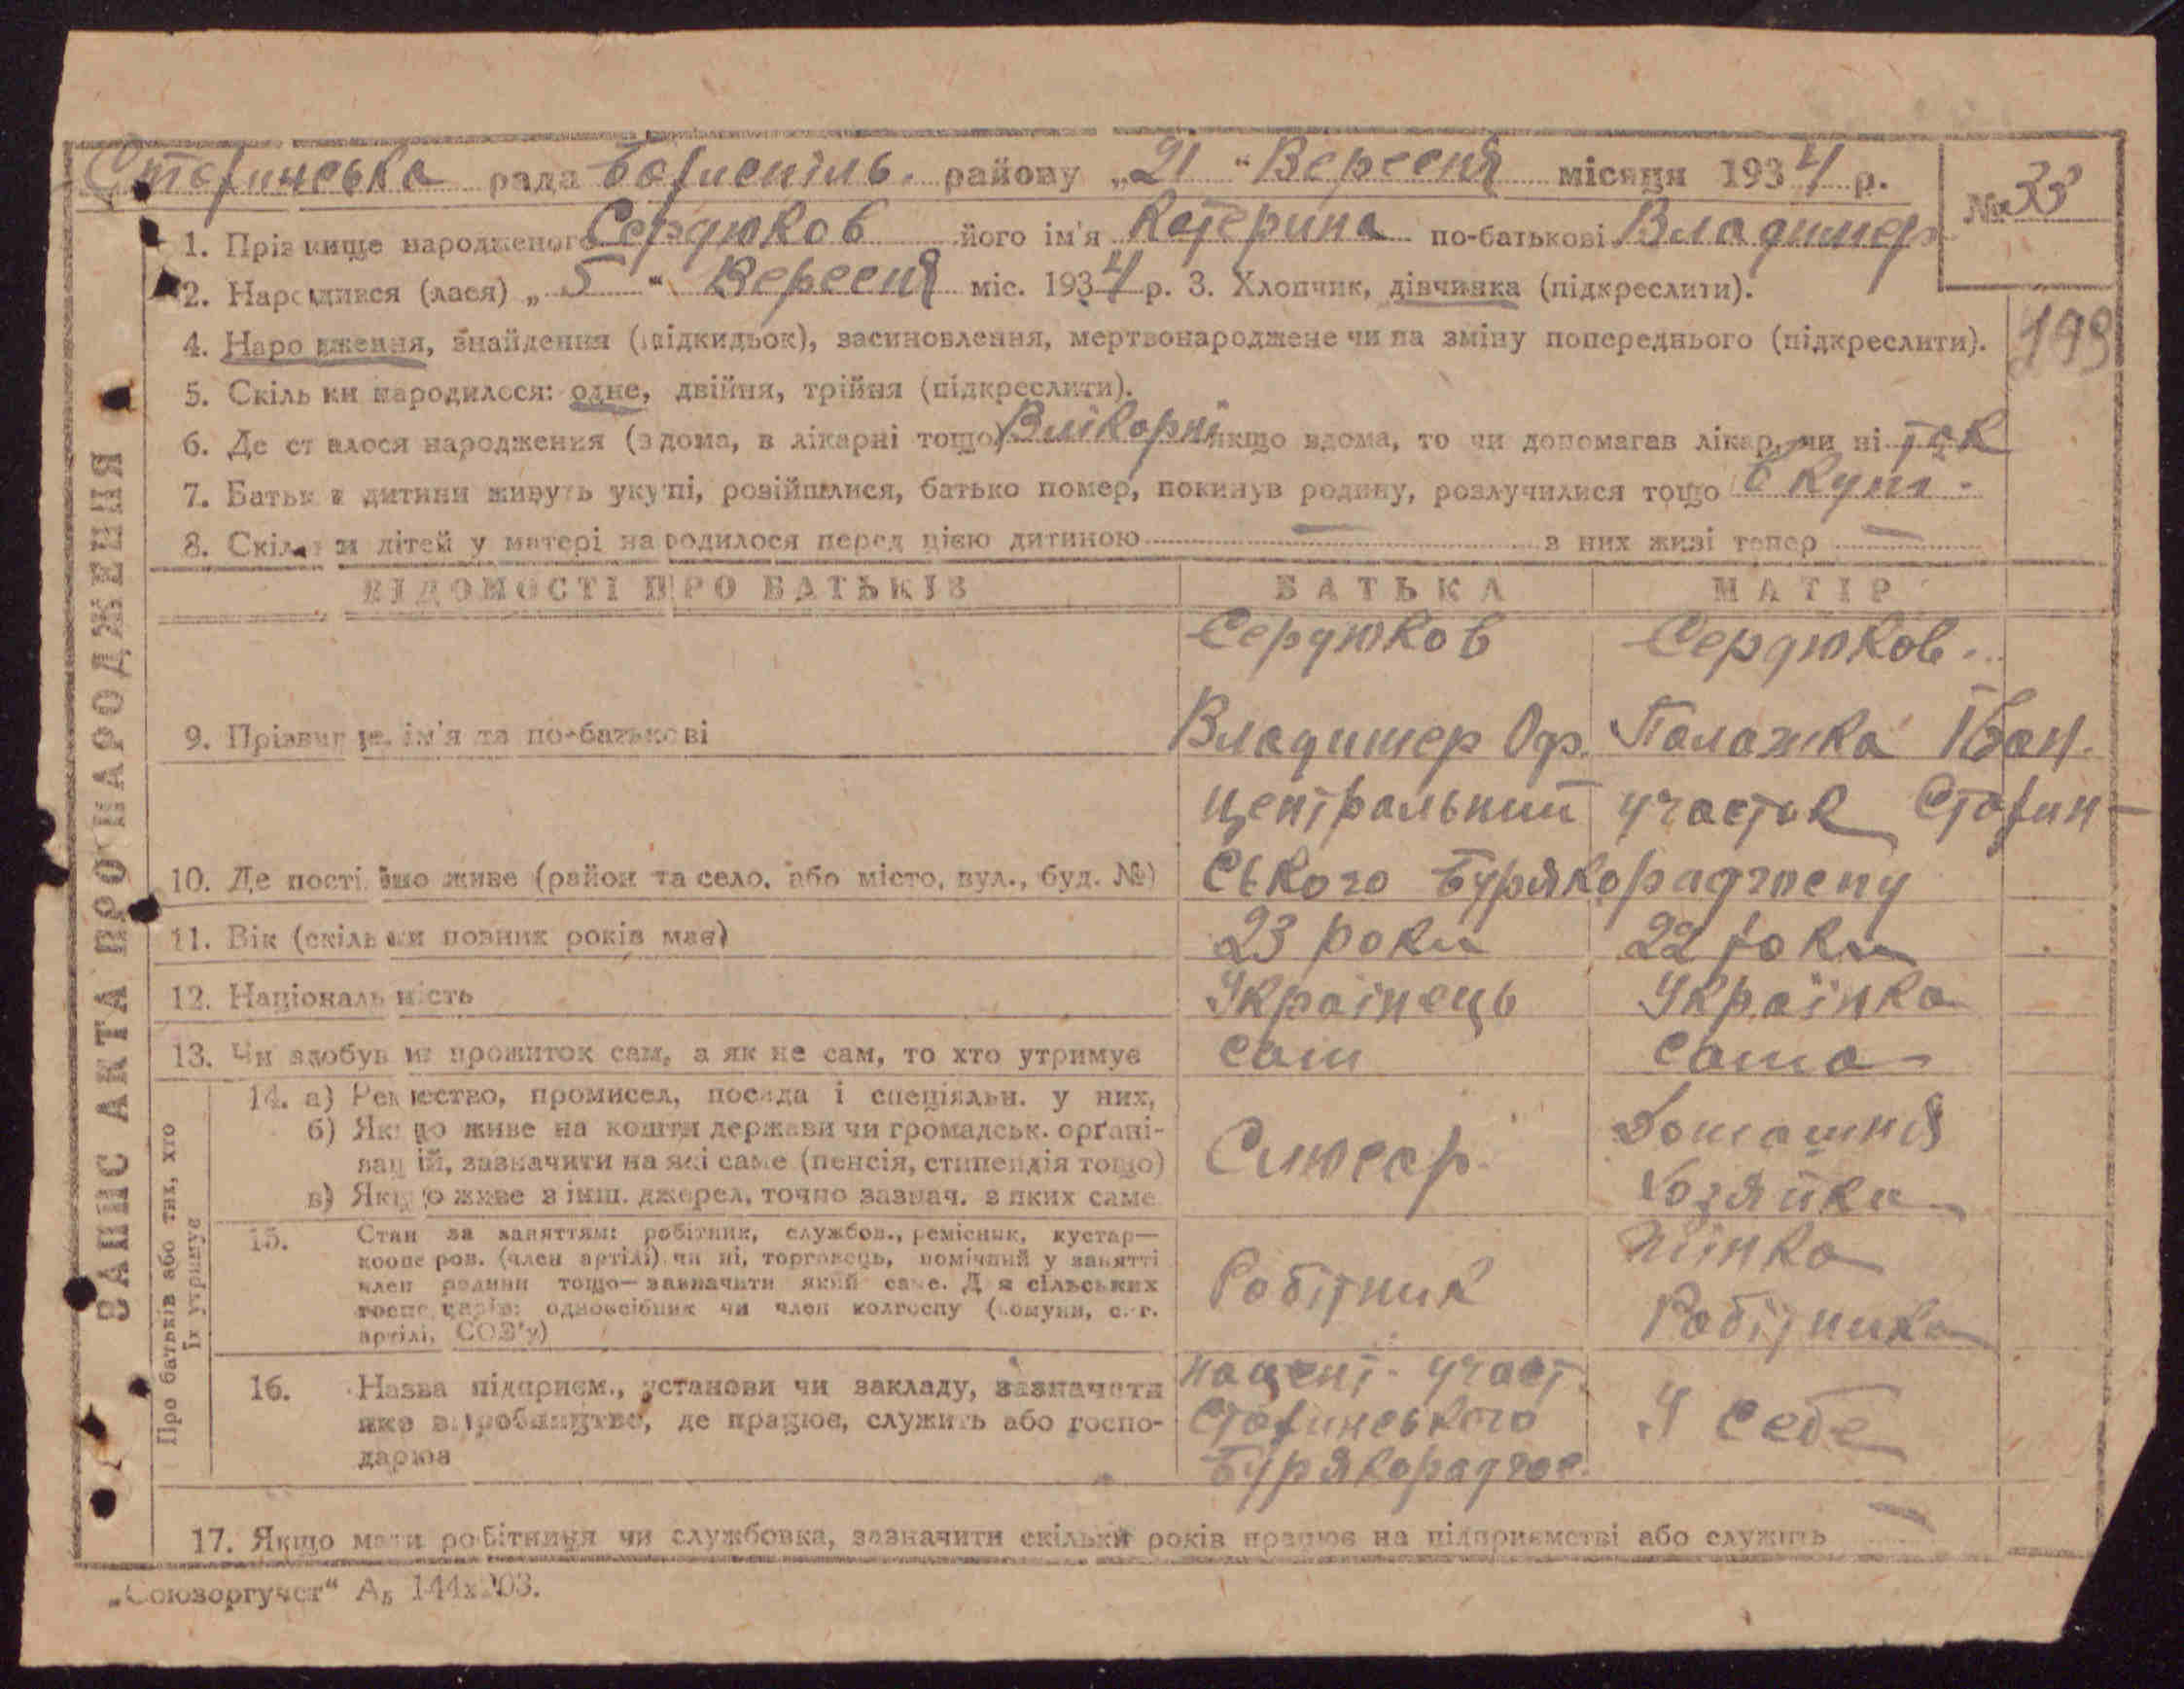 Старинська рада Бориспіль. району „21“ Вересня місяця 1934 р.
№ 33
1. Прізвище народженого Сердюков його ім'я Катерина по-батькові Владимер
2. Народився (лася) „5“ Вересня міс. 1934 р. 3. Хлопчик, дівчинка (підкреслити).
4. Народження, знайдення (підкидьок), засиновлення, мертвонароджене чи на зміну попереднього (підкреслити).
199
5. Скільки народилося: одне, двійня, трійня (підкреслити).
6. Де сталося народження (вдома, в лікарні тощо) Влікарні якщо вдома, то чи допомагав лікар, чи ні так
7. Батьки дитини живуть укупі, розійшлися, батько помер, покинув родину, розлучилися тощо
8. Скільки дітей у матері народилося перед цією дитиною — з них живі тепер —
ВІДОМОСТІ ПРО БАТЬКІВ БАТЬКА МАТІР
Сердюков Сердюков.
9. Прізвище, ім'я та по-батькові Владимер Ор. Палажка Іван.
центральний участок Старин-
10. Де постійно живе (район та село, або місто, вул., буд. №) ського Бурякорадгоспу
11. Вік (скільки повних років має) 23 роки 22 роки
12. Національність Українець Українка
13. Чи здобував прожиток сам, а як не сам, то хто утримує сам сама
14. а) Ремество, промисел, посада і спеціяльн. у них,
б) Якщо живе на кошти держави чи громадськ. органі-
зацій, зазначити на які саме (пенсія, стипендія тощо)
в) Якщо живе з інш. джерел, точно зазнач. з яких саме
Слюсар
Домашня
хозяйка
15. Стан за заняттям: робітник, службов., ремісник, кустар—
коопеpов. (член артілі) чи ні, торговець, помічний у занятті
член родини тощо—зазначити який саме. Для сільських
господарів: одноосібник чи член колгоспу (комуни, с.-г.
артілі, СОЗ'у)
Робітник
Жінка
Робітника
16. Назва підприєм., установи чи закладу, зазначити
яке виробництво, де працює, служить або госпо-
дарює
нацент. участ.
Старинського
Бурякорадгос.
У себе
17. Якщо мати робітниця чи службовка, зазначити скільки років працює на підприємстві або служить —
„Союзоргучет“ А₅ 144х203.
ЗАПИС АКТА ПРО НАРОДЖЕННЯ
Про батьків або тих, хто
їх утримує